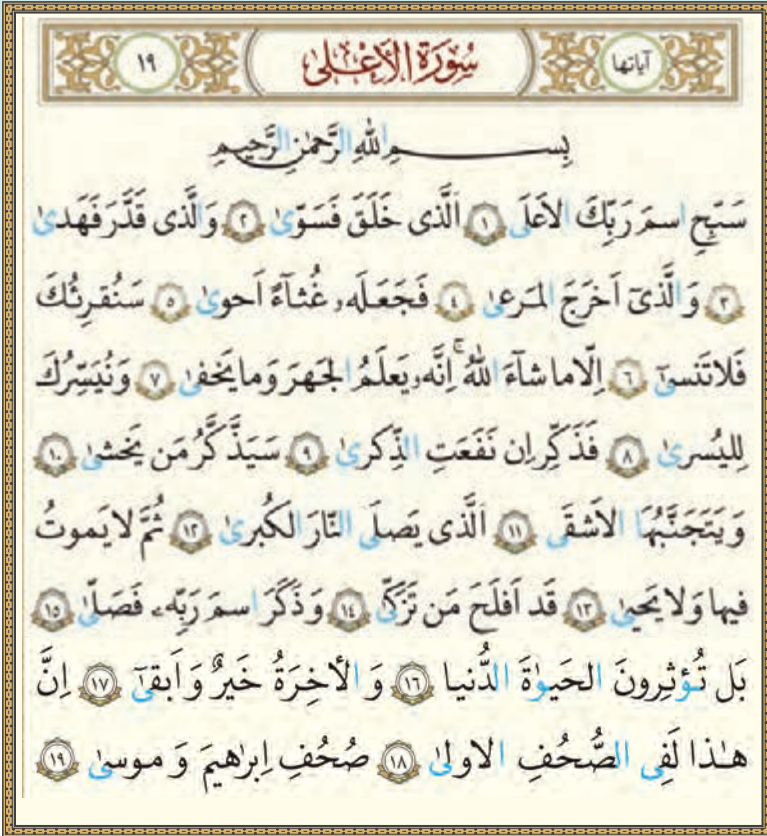 آیاتها سُورَةُ الأَعْلىٰ ١٩
بِسمِ اللهِ الرَّحمٰنِ الرَّحیمِ
سَبِّحِ اسمَ رَبِّكَ الاَعلَی ﴿١﴾ اَلَّذی خَلَقَ فَسَوّیٰ ﴿٢﴾ وَ الَّذی قَدَّرَ فَهَدیٰ
﴿٣﴾ وَ الَّذیٓ اَخرَجَ المَرعیٰ ﴿٤﴾ فَجَعَلَهۥ غُثآءً اَحویٰ ﴿٥﴾ سَنُقرِئُكَ
فَلا تَنسیٰٓ ﴿٦﴾ اِلّا ما شآءَ اللهُ ۚ اِنَّهۥ یَعلَمُ الجَهرَ وَ ما یَخفیٰ ﴿٧﴾ وَ نُیَسِّرُكَ
لِلیُسریٰ ﴿٨﴾ فَذَكِّر اِن نَفَعَتِ الذِّكریٰ ﴿٩﴾ سَیَذَّكَّرُ مَن یَخشیٰ ﴿١٠﴾
وَ یَتَجَنَّبُهَا الاَشقَی ﴿١١﴾ اَلَّذی یَصلَی النّارَ الكُبریٰ ﴿١٢﴾ ثُمَّ لا یَموتُ
فیها وَ لا یَحییٰ ﴿١٣﴾ قَد اَفلَحَ مَن تَزَكّیٰ ﴿١٤﴾ وَ ذَكَرَ اسمَ رَبِّهۦ فَصَلّیٰ ﴿١٥﴾
بَل تُؤثِرونَ الحَیوٰةَ الدُّنیا ﴿١٦﴾ وَ الأخِرَةُ خَیرٌ وَ اَبقیٰٓ ﴿١٧﴾ اِنَّ
هـٰذا لَفِی الصُّحُفِ الاولیٰ ﴿١٨﴾ صُحُفِ اِبرٰهیمَ وَ موسیٰ ﴿١٩﴾